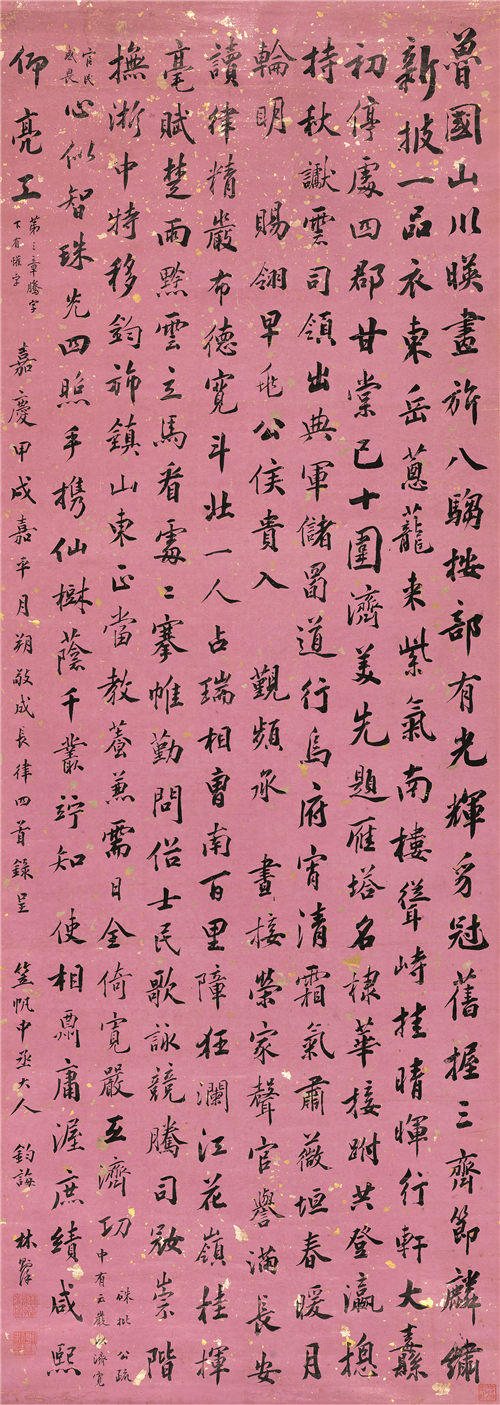 魯國山川暎畫旂八騶按部有光輝豸冠舊握三齊節麟繡
新披一品衣東岳蔥蘢來紫氣南樓聳峙挂晴暉行軒大纛
初停處四郡甘棠已十圍濟美先題雁塔名棣華接跗共登瀛揔
持秋讞雲司領出典軍儲蜀道行烏府宵清霜氣肅薇垣春暖月
輪明賜翎早兆公侯貴入覲頻承晝接榮家聲官譽滿長安
讀律精嚴布德寬斗壯一人占瑞相曹南百里障狂瀾江花嶺桂揮
毫賦楚雨黔雲立馬看處〻搴帷勤問俗士民歌詠競騰司敭崇階
撫浙中特移鈞斾鎮山東正當教養兼需日全倚寬嚴互濟功硃批公疏中有云嚴以濟寬
官民感畏心似智珠光四照手攜仙樾蔭千叢竚知使相需庸渥庶績咸熙
仰亮工第三章騰字下有懽字嘉慶甲戌嘉平月朔敬成長律四首錄呈笠帆中丞大人鈞誨林